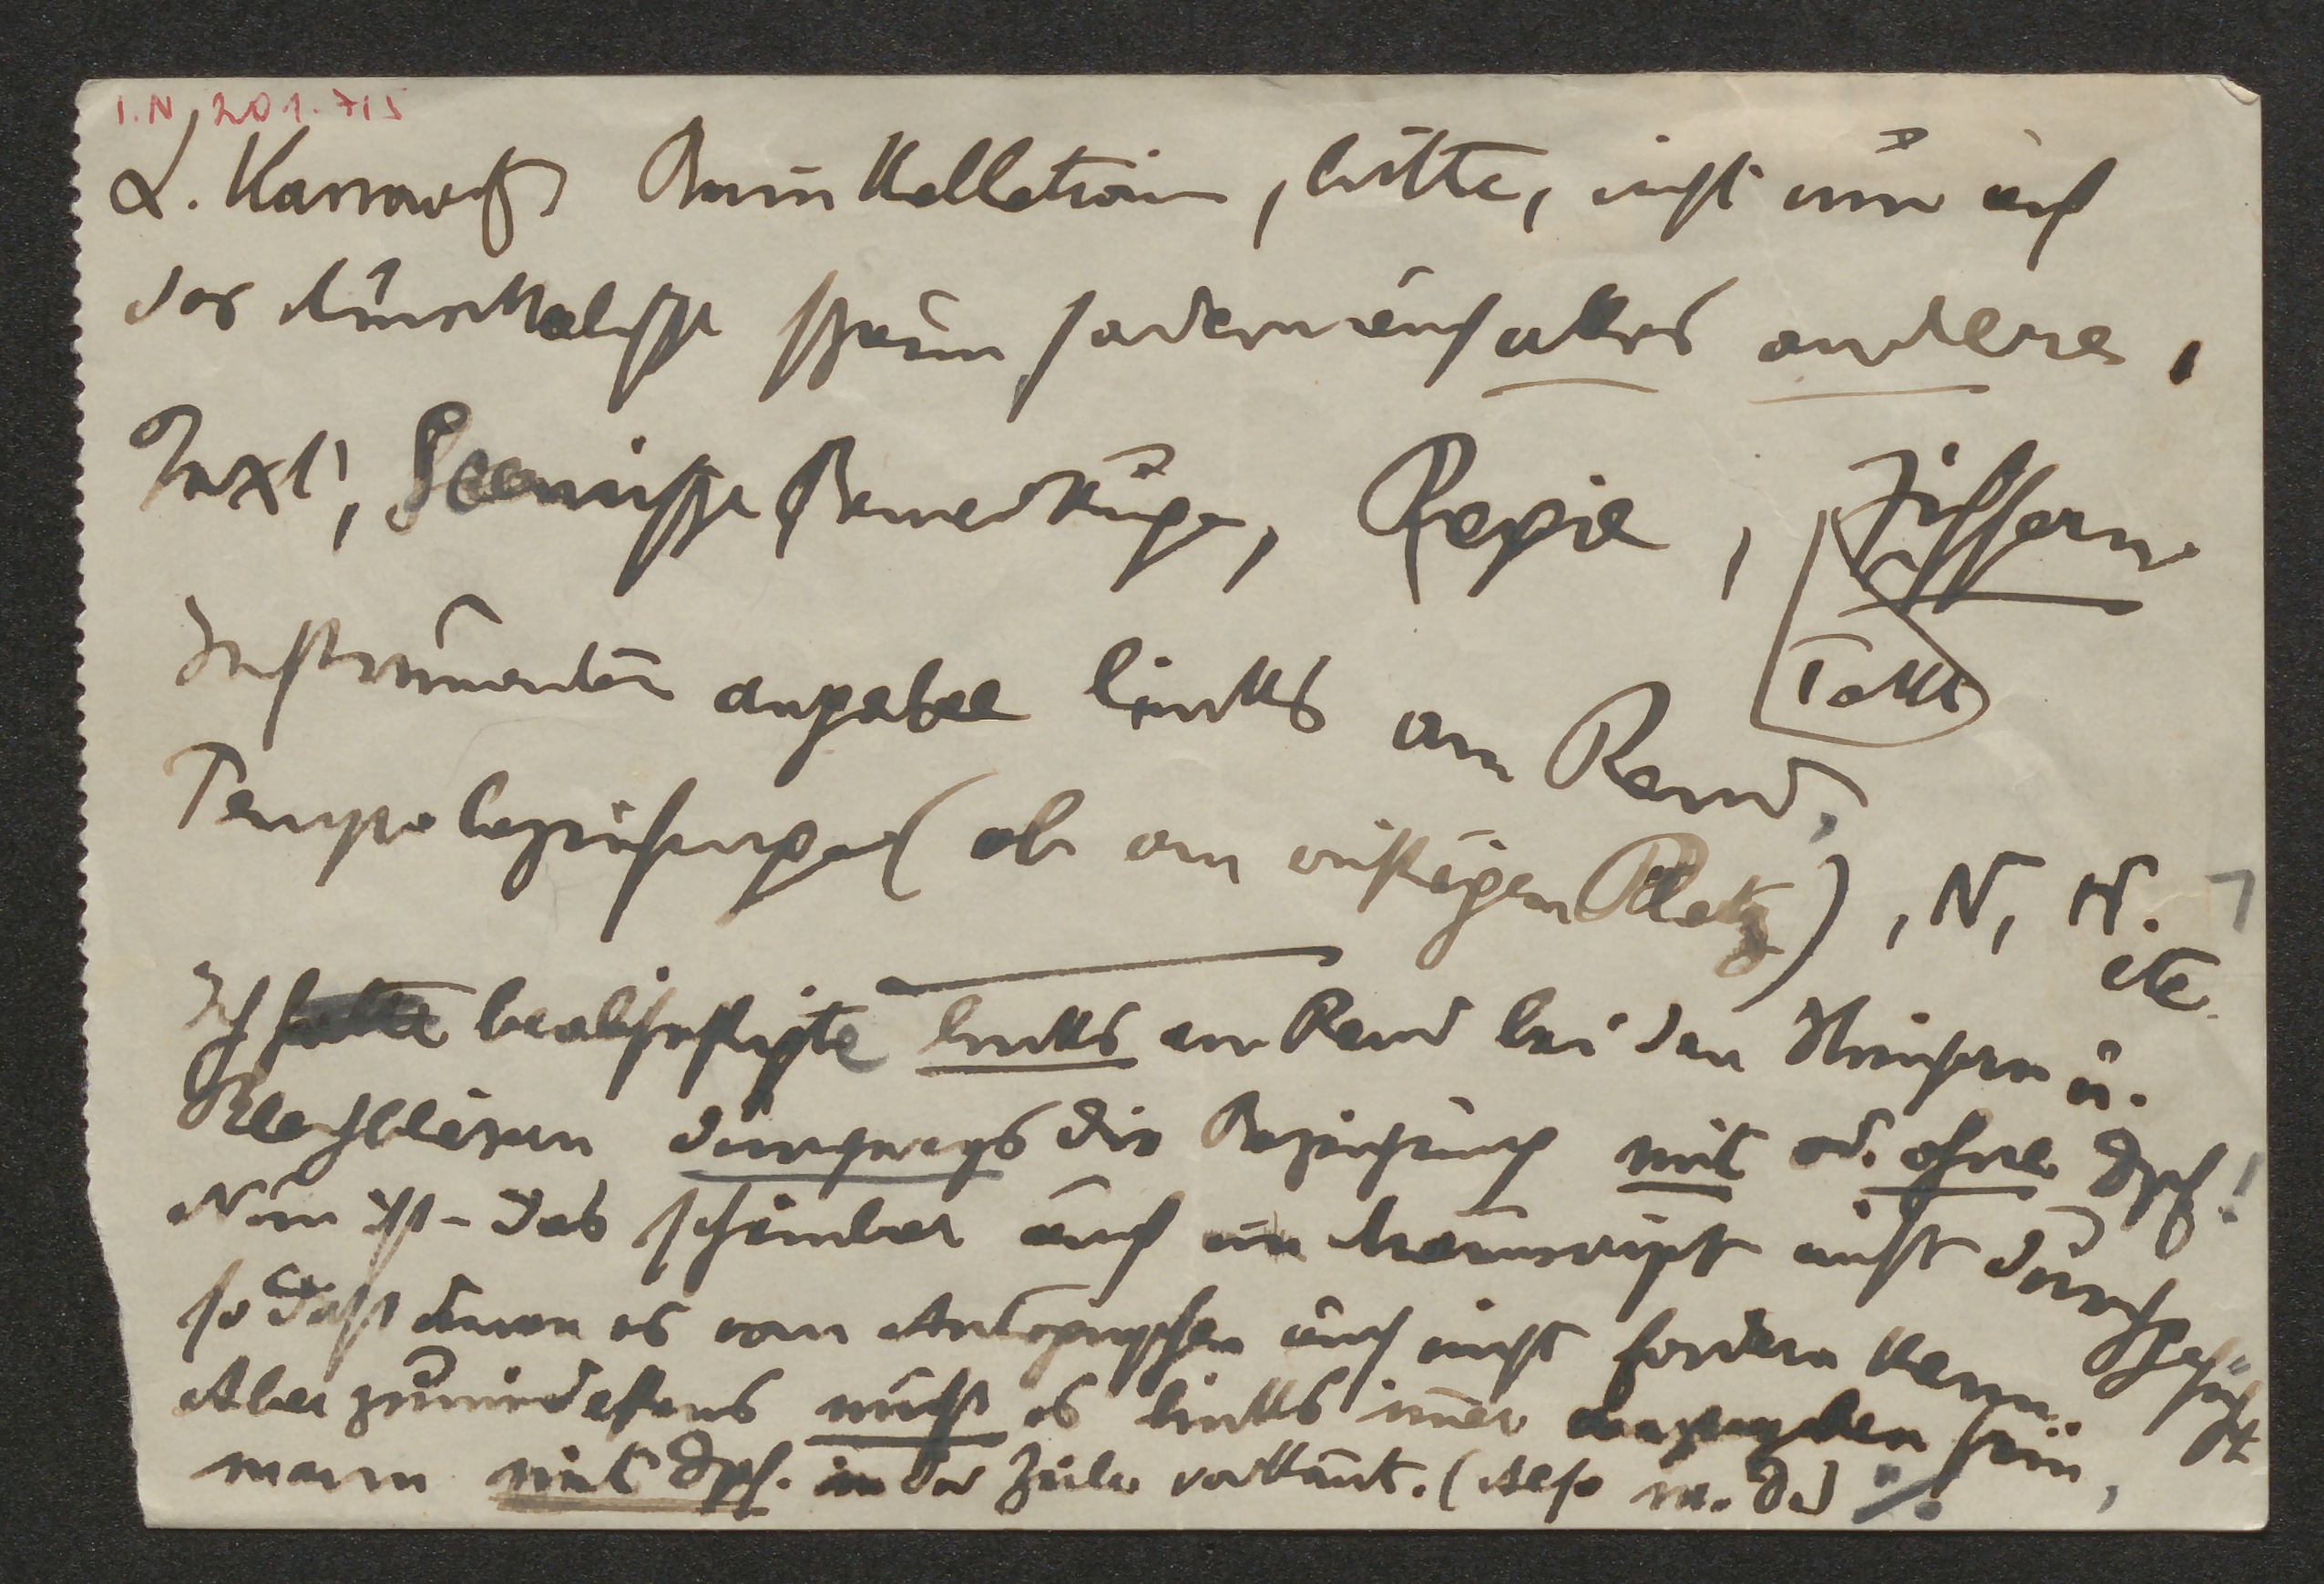 I.N. 201.715
L. Kassowitz Beim Kollationieren, bitte, nicht nur auf
das Musikalische schauen, sondern auch alles andere,
Text, Scenische Bemerkungen, Regie, Ziffern
Takt
Instrumentenangabe links am Rand,
Tempobezeichnungen (ob am richtigen Platz), N, H. ⌝
etc.
Ich hatte beabsichtigte links am Rand bei den Streichern u.
Blechbläsern durchwegs die Bezeichnung mit od. ohne Dpf!
Nun ist das scheinbar auch im Manuscript nicht durchgeführt
so daß man es vom Autographen auch nicht fordern kann.
Aber zumindestens muß es links immer angegeben sein,
wenn mit Dpf. in der Zeile vorkommt. (Also m. D.)